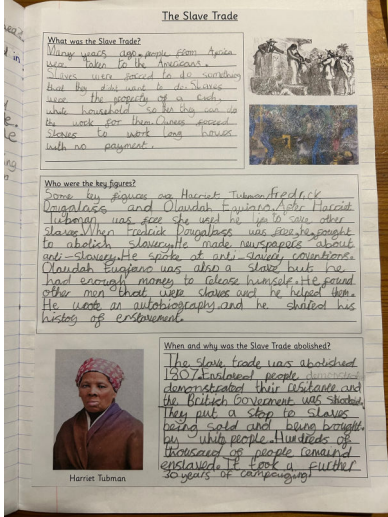 The Slave Trade
What was the Slave Trade?
Many years ago people from Africa
were taken to the Americans.
Slaves were forced to do something
that they didnt want to do. Slaves
were the property of a
white household so then they can do
the work for them. Owners forced
slaves to work long hours
with no payment.
Who were the key figures?
Some key figures are Harriet Tubman, Fredrick
Dougalass and Olaudah Equiano. After Harriet
Tubman was free she used he life to save other
slaves. When Fredrick Dougalbass was free, he fought
to abolish slavery. He made newspapers about
anti-slavery. He spoke at anti-slavery coventions.
Olaudah Eugiano was also a slave but he
had enough money to release himself. He found
other men that were slaves and he helped them.
He wrote an autobiography and he shared his
history of enslavement.
When and why was the Slave Trade abolished?
The slave trade was abolished
1807. Enslaved people
demonstrated their resitance and
the British Goverment was
They put a stop to slaves
being sold and being brought
by white people. Hundreds of
thousand of people remaind
enslaved. It took a further
30 years of campaiging!
Harriet Tubman